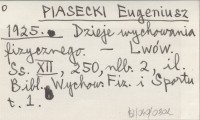 PIASECKI Eugeniusz
1925. Dzieje wychowania
fizycznego. — Lwów.
Ss. XII, 250, nlb. 2, il.
Bibl. Wychow. Fiz. i Sportu
t. 1.